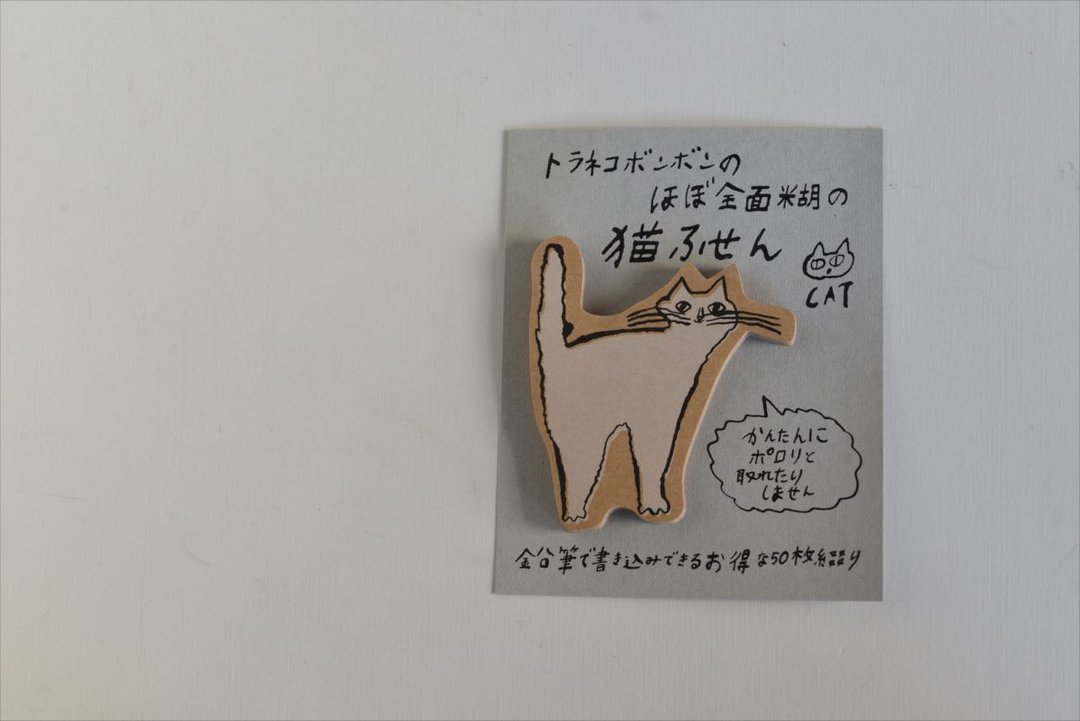 トラネコボンボンの
ほぼ全面糊の
猫ふせん
CAT
かんたんに
ポロリと
取れたり
しません
鉛筆で書き込みできるお得な50枚綴り